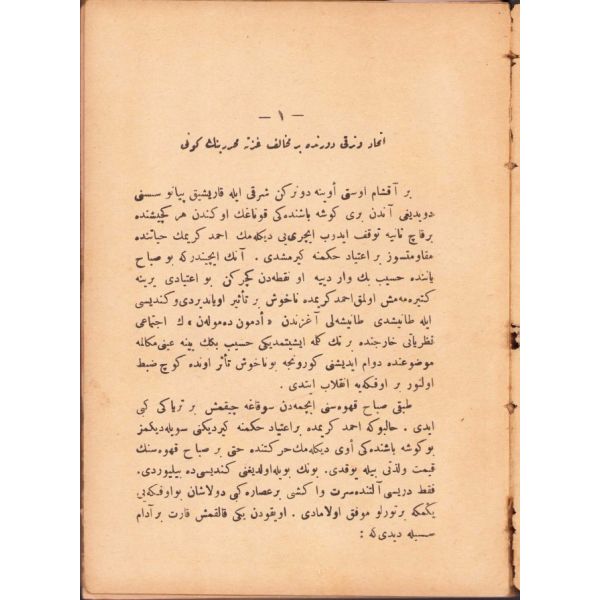 — ١ —
اتحاد وترقى دورنده بر مخالف غزته محررينك كونى
بر آقشام اوستى أوينه دونركن شرقى ايله قاريشيق پيانو سسنى
دويديغى آندن برى كوشه باشنده‌كى قوناغك اوكندن هر كچيشنده
برقاچ ثانيه توقف ايدرب ايچرى‌يى ديكله‌مك احمد كريمك حياتنده
مقاومتسوز بر اعتياد حكمنه كيرمشدى . آنك ايچيندركه بو صباح
ياننده حسيب بك وار دييه او نقطه‌دن كچركن بو اعتيادى يرينه
كتيره‌مه‌مش اولمق احمد كريمده ناخوش بر تأثير اوياندیردى وكنديسى
ايله طانيشدى طانيشه‌لى آغزندن « أدمون ده‌موله‌ن » ك اجتماعى
نظرياتى خارجنده بر تك كله ايشيتمديكى حسيب بكك ينه عينى مكالمه
موضوعنده دوام ايديشنى كورونجه بو ناخوش تأثر اونده كوچ ضبط
اولنور بر اوفكه‌يه انقلاب ايتدى .
طبقى صباح قهوه‌سنى ايچمه‌دن سوقاغه چيقمش بر ترياكى كبى
ايدى . حالبوكه احمد كريمده بر اعتياد حكمنه كيرديكنى سويله‌ديكمز
بوكوشه باشنده‌كى أوى ديكله‌مك حركتنده حتى بر صباح قهوه‌سنك
قيمت ولذتى بيله يوقدى . بونك بويله اولديغنى كنديسى‌ده بيلييوردى.
فقط دريسى آلتنده سرت وا كشى بر عصاره كبى دولاشان بو اوفكه‌يى
يكمكه بر تورلو موفق اولامادى . اويقودن يكى قالقمش قارت بر آدام
سسيله ديدى كه :